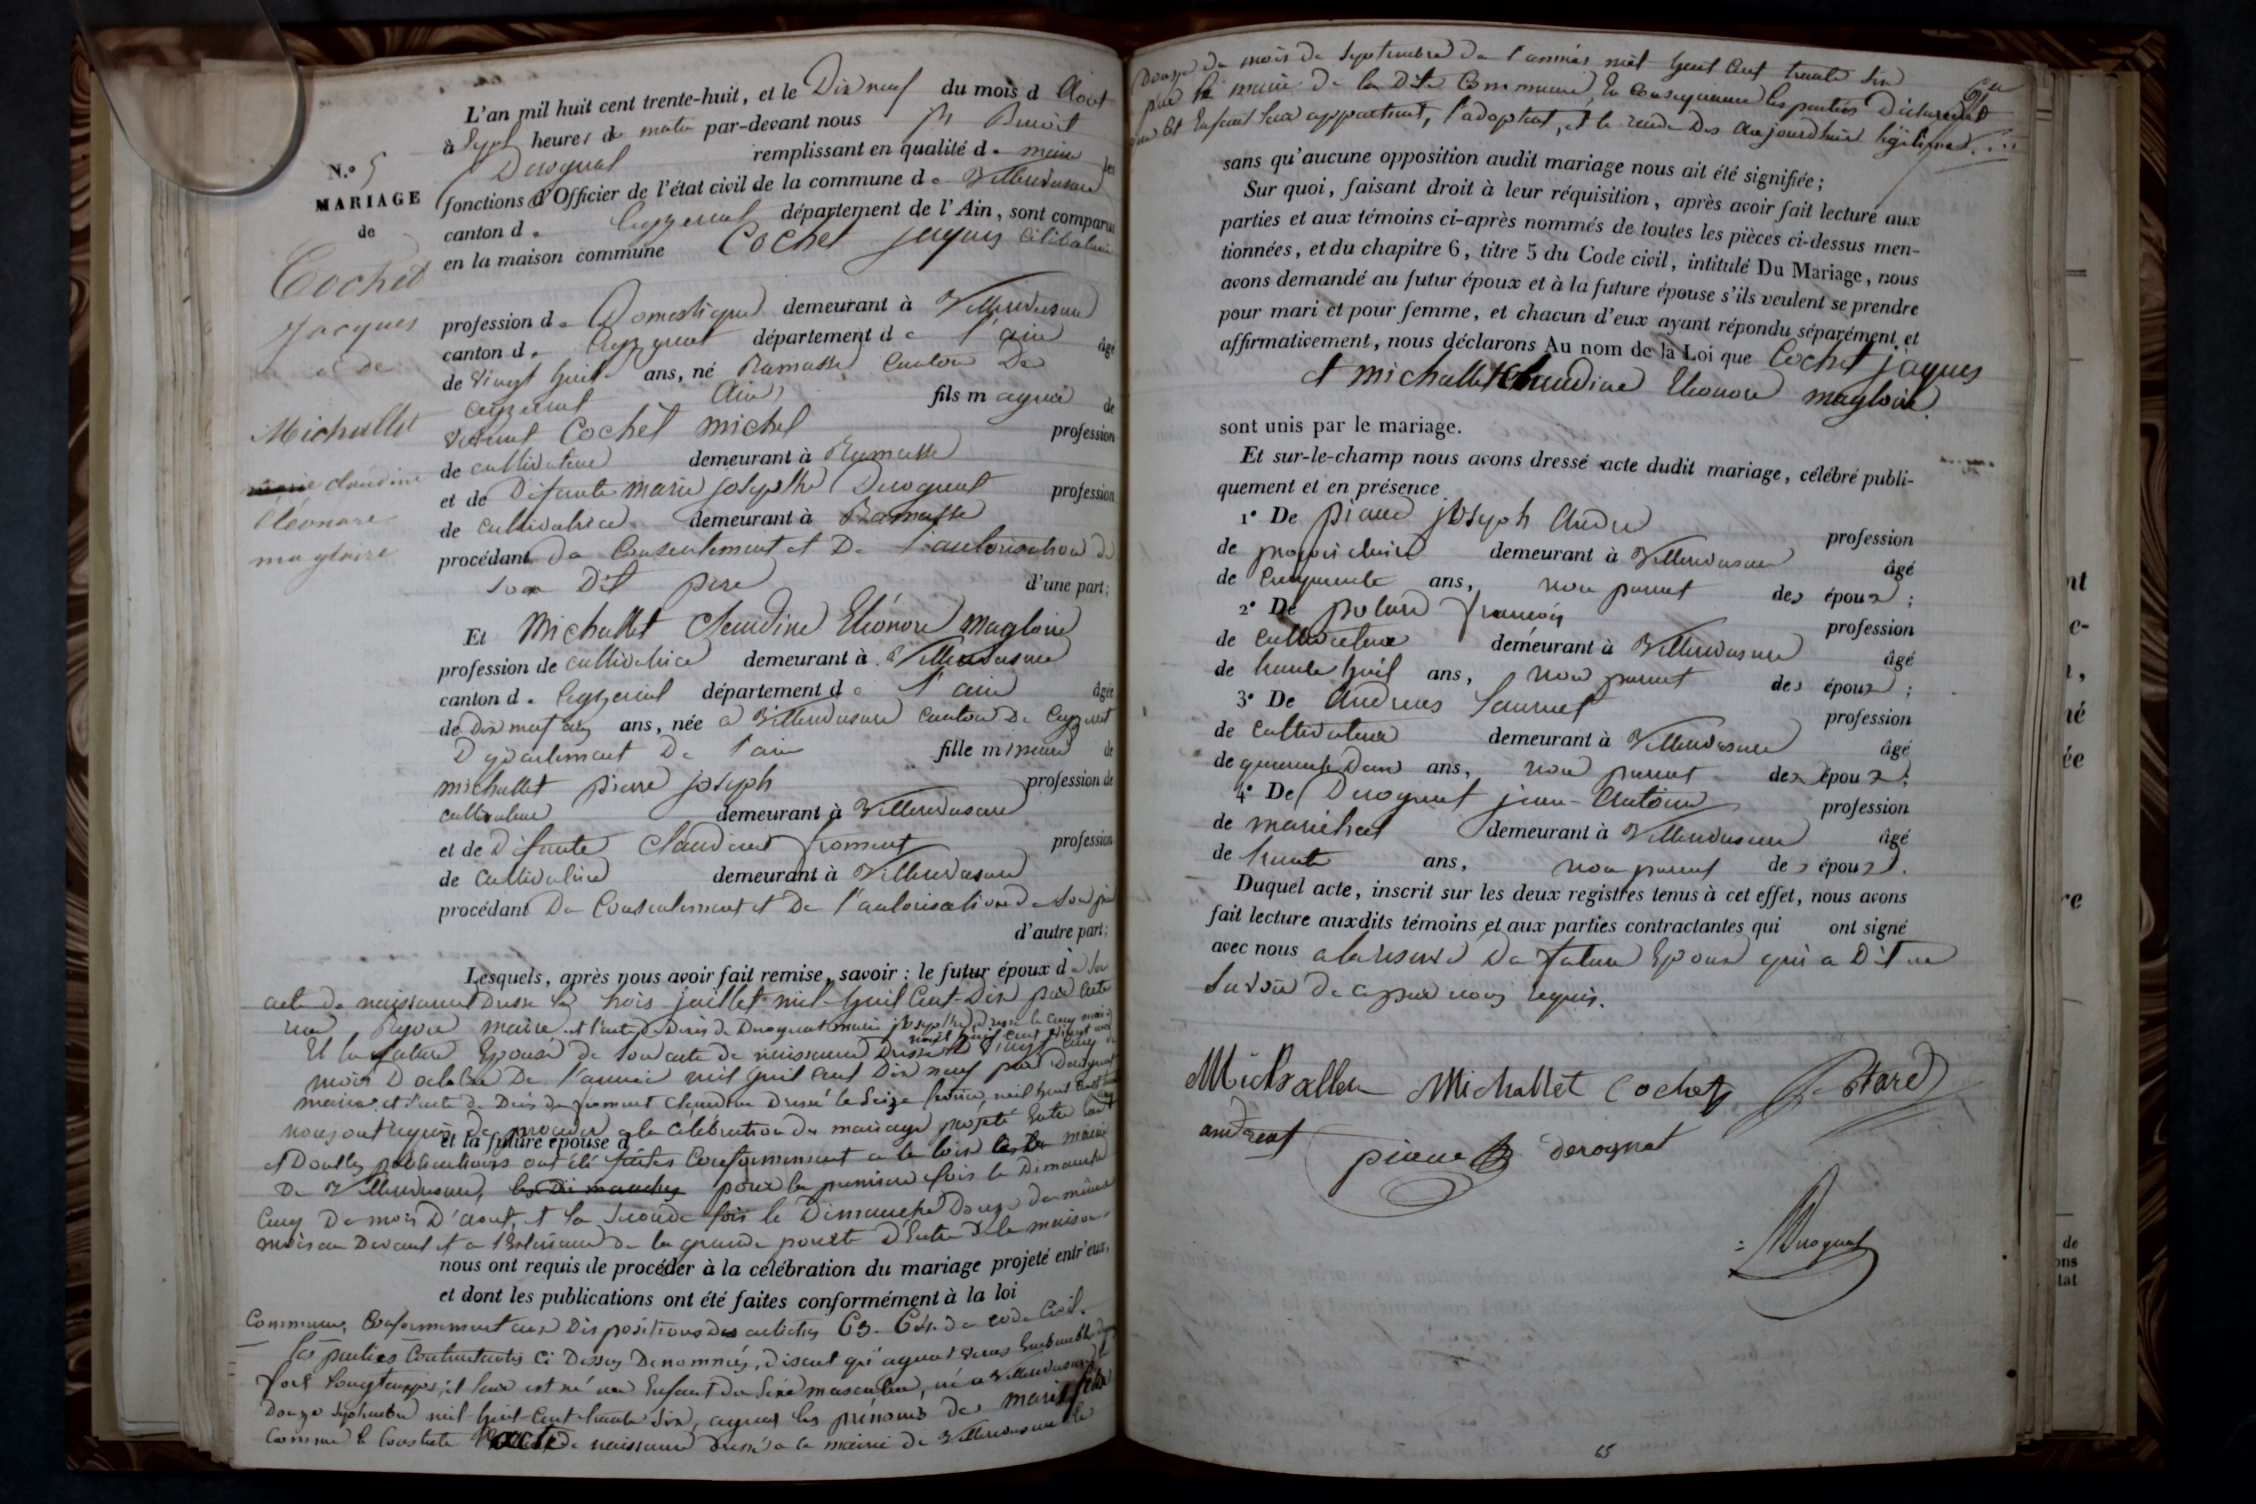 L'an mil huit cent trente-huit, et le Dix neuf du mois d Août
à Sept heures du matin par-devant nous Benoit
N.° 5
Derognat remplissant en qualité de maire les
MARIAGE
fonctions d'Officier de l'état civil de la commune de Villereversure
de
canton de Ceyzeriat département de l'Ain, sont comparus
en la maison commune Cochet jaques Célibataire
Cochet
Jacques
profession de Domestique demeurant à Villereversure
canton de Ceyzeriat département de l'ain âgé
de Vingt huit ans, né Ramasse Canton De
Ceyzeriat Ain fils majeur de
Michallet
vivant Cochet michel profession
de cultivateur demeurant à Ramasse
claudine
et de Défunte marie josephte Derognat profession
Eléonore
de cultivatrice demeurant à Ramasse
magloire
procédant Du Consentement et De l'autorisation de
Son Dit père d'une part;
Et Michallet Claudine Eléonore magloire
profession de cultivatrice demeurant à Villereversure
canton de Ceyzeriat département de l'ain âgée
de Dix neuf ans, née à Villereversure Canton De Ceyzeriat
Département De l'ain fille mineure de
michallet pierre joseph profession de
cultivateur demeurant à Villereversure
et de Défunte Claudine froment profession
de Cultivatrice demeurant à Villereversure
procédant Du Consentement et De l'autorisation de Son père
d'autre part;
Lesquels, après nous avoir fait remise, savoir : le futur époux de Son
acte de naissance Dressé le trois juillet mil huit Cent Dix par
maire et l'acte de Décès de Derognat marie josephte, Dressé le Cinq
mil huit cent vingt
Et la future Epouse de Son acte de naissance Dressé le Vingt Cinq du
mois D'octobre De l'année mil huit cent Dix neuf par Derognat
maire et l'acte de Décès de froment Claudine Dressé le Seize mil huit Cent
nous ont requis de procéder à la célébration du mariage projeté Entre Eux
et la future épouse d
et Dont les publications ont été faites Conformément à la loi
De Villereversure, les Dimanches pour la première fois le Dimanche
Cinq Du mois D'aout, et la Seconde fois le Dimanche Douze du même
mois au Devant et à l'Extérieur de la grande porte D'Entrée De la maison
nous ont requis de procéder à la célébration du mariage projeté entr'eux,
et dont les publications ont été faites conformément à la loi
Commune, Conformément aux Dispositions des articles 63. 64. du code Civil.
les parties Contractantes Ci Dessus Dénommées, Disent qu'ayant vécus Ensemble
fort longtemps, il leur est né un Enfant Du Sexe masculin, né à Villereversure le
Douze Septembre mil huit Cent trente Six, ayant les prénoms de marie félix
Comme le Constate l'acte de naissance Dressé à la mairie de Villereversure le
Douze du mois de Septembre de l'année mil huit Cent trente Six
par le maire de la Dite Commune, En Conséquence les parties Déclarent
que cet Enfant leur appartient, l'adoptent, et le rende Dès aujourdhuie légitime.
sans qu'aucune opposition audit mariage nous ait été signifiée;
Sur quoi, faisant droit à leur réquisition, après avoir fait lecture aux
parties et aux témoins ci-après nommés de toutes les pièces ci-dessus men-
tionnées, et du chapitre 6, titre 5 du Code civil, intitulé Du Mariage, nous
avons demandé au futur époux et à la future épouse s'ils veulent se prendre
pour mari et pour femme, et chacun d'eux ayant répondu séparément et
affirmativement, nous déclarons Au nom de la Loi que Cochet jaques
et michallet Claudine Eleonore magloire.
sont unis par le mariage.
Et sur-le-champ nous avons dressé acte dudit mariage, célébré publi-
quement et en présence
1° De piaud joseph André profession
de propriétaire demeurant à Villereversure âgé
de Cinquante ans, non parent des époux;
2° De polard françois profession
de cultivateur demeurant à Villereversure âgé
de trente huit ans, non parent des époux;
3° De Laurent profession
de Cultivateur demeurant à Villereversure âgé
de quarante Deux ans, non parent des époux;
4° De Derognat jean-Antoine profession
de maréchal demeurant à Villereversure âgé
de trente ans, non parent des époux.
Duquel acte, inscrit sur les deux registres tenus à cet effet, nous avons
fait lecture auxdits témoins et aux parties contractantes qui ont signé
avec nous a la reserve De la future Epouse qui a Dit ne
Savoir de ce par nous requis.
Michallet Cochet
piaud derognat
Derognat
65